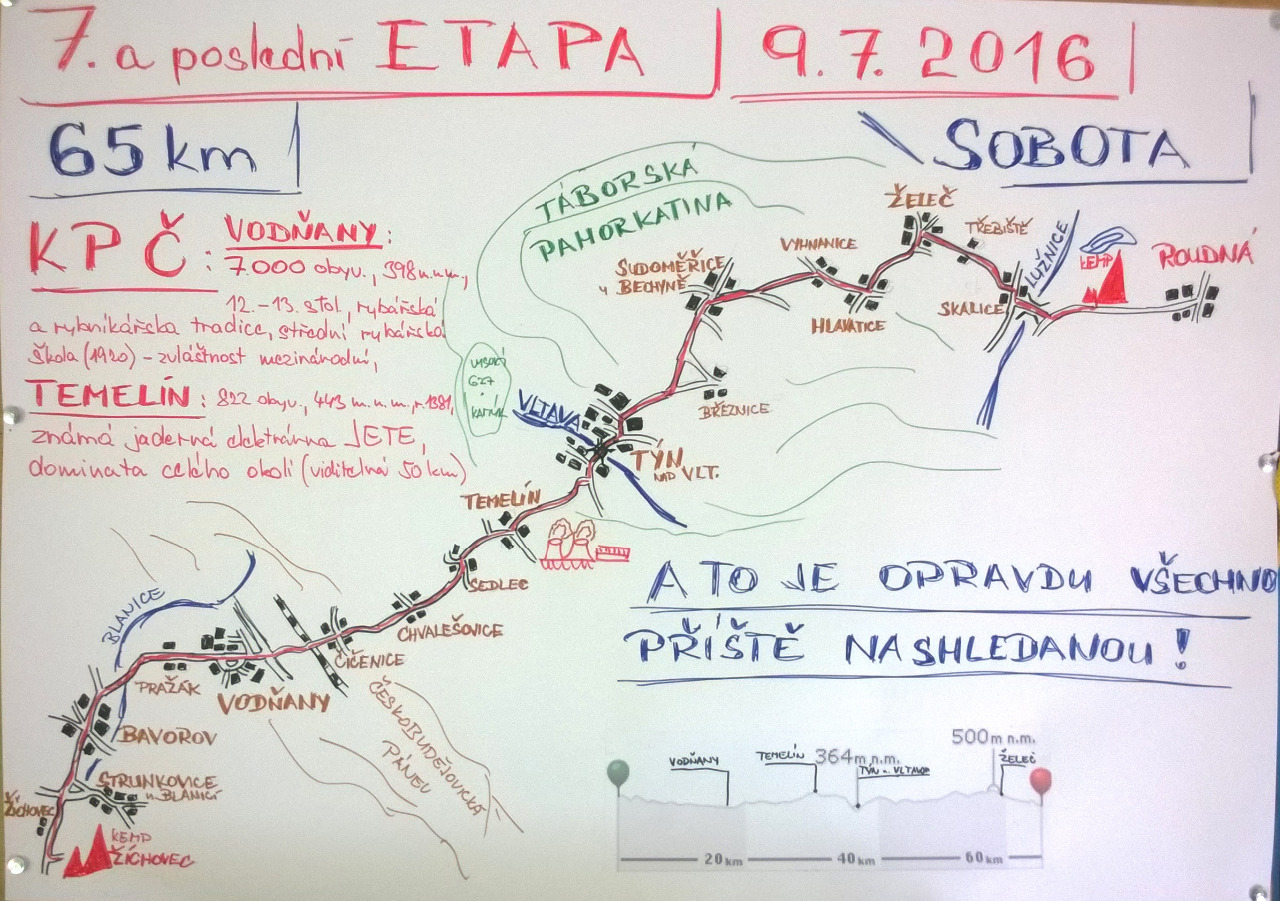 7. a poslední ETAPA 9.7.2016
65 km
SOBOTA
KPČ: VODŇANY:
7.000 obyv., 398 m.n.m.,
12.-13. stol, rybářská
a rybníkářska tradice, střední rybářská
škola (1920) - zvláštnost mezinárodní,
TEMELÍN: 822 obyv., 443 m.n.m., r. 1381,
známá jaderná elektrárna JETE,
dominata celého okolí (viditelná 50 km)
TÁBORSKÁ
PAHORKATINA
ŽELEČ
TŘEBIŠTĚ
LUŽNICE
KEMP
ROUDNÁ
VYHNANICE
SUDOMĚŘICE
U BECHYNĚ
HLAVATICE
SKALICE
BŘEZNICE
VYSOKÝ
627
KAMÝK
VLTAVA
TÝN
NAD VLT.
TEMELÍN
SEDLEC
CHVALEŠOVICE
ČIČENICE
BLANICE
PRAŽÁK
VODŇANY
ČESKOBUDĚJOVICKÁ
PÁNEV
BAVOROV
STRUNKOVICE
N. BLANICÍ
ŽÍCHOVEC
KEMP
ŽÍCHOVEC
A TO JE OPRAVDU VŠECHNO
PŘÍŠTĚ NASHLEDANOU!
VODŇANY
TEMELÍN
364m n.m.
TÝN n. VLTAVOU
500m n.m.
ŽELEČ
20 km
40 km
60 km